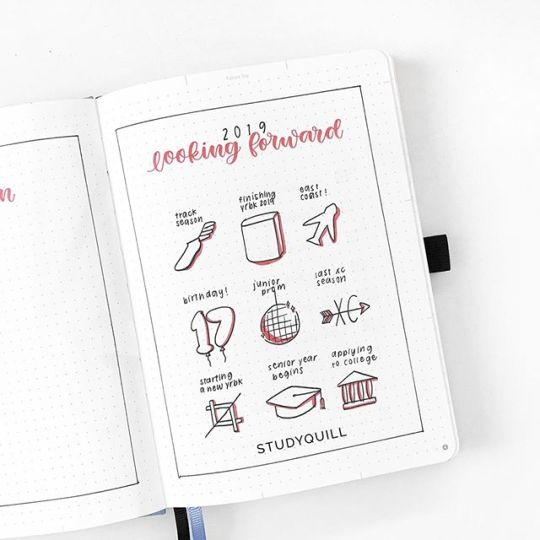 n
2019
looking forward
track
season
finishing
yrbk 2019
east
coast!
birthday!
junior
prom
last xc
season
17
XC
starting
a new yrbk
senior year
begins
applying
to college
STUDYQUILL